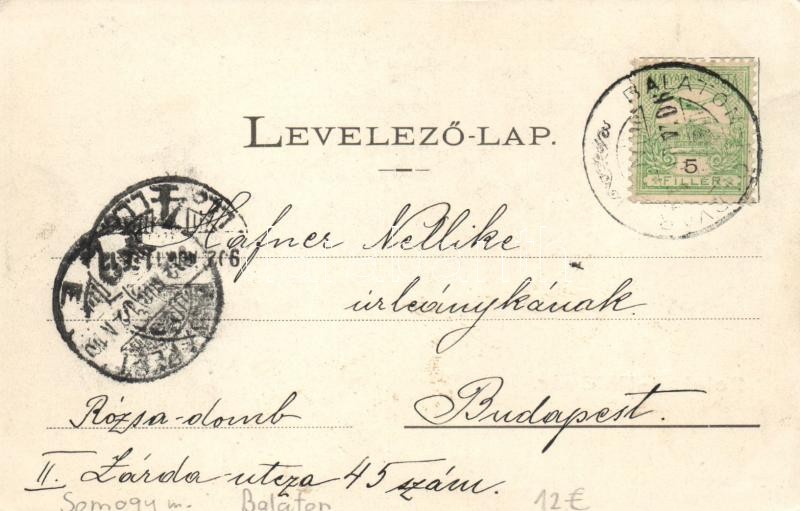 LEVELEZŐ-LAP.
BALATON
5
FILLÉR
Hafner Nellike
úrleánykának.
Rózsa-domb Budapest.
II. Zárda-utcza 45 szám.
Somogy m. Balaton 12€